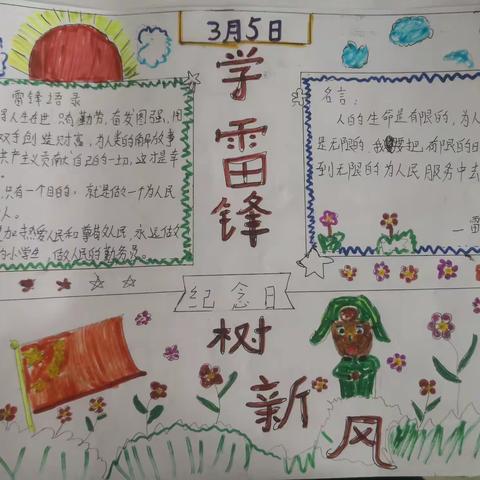 3月5日
学
雷
锋
雷锋语录
人生在世 只有勤劳，奋发图强，用
双手创造财富，为人类的解放事
共产主义贡献自己的一切，这才是幸
，只有一个目的，就是做一个为人民
人。
加热爱人民和尊敬人民，永远做
的小学生，做人民的勤务员。
名言：
人的生命是有限的，为人
是无限的，我要把有限的日
到无限的为人民服务中去
—雷
纪念日
树
新
风